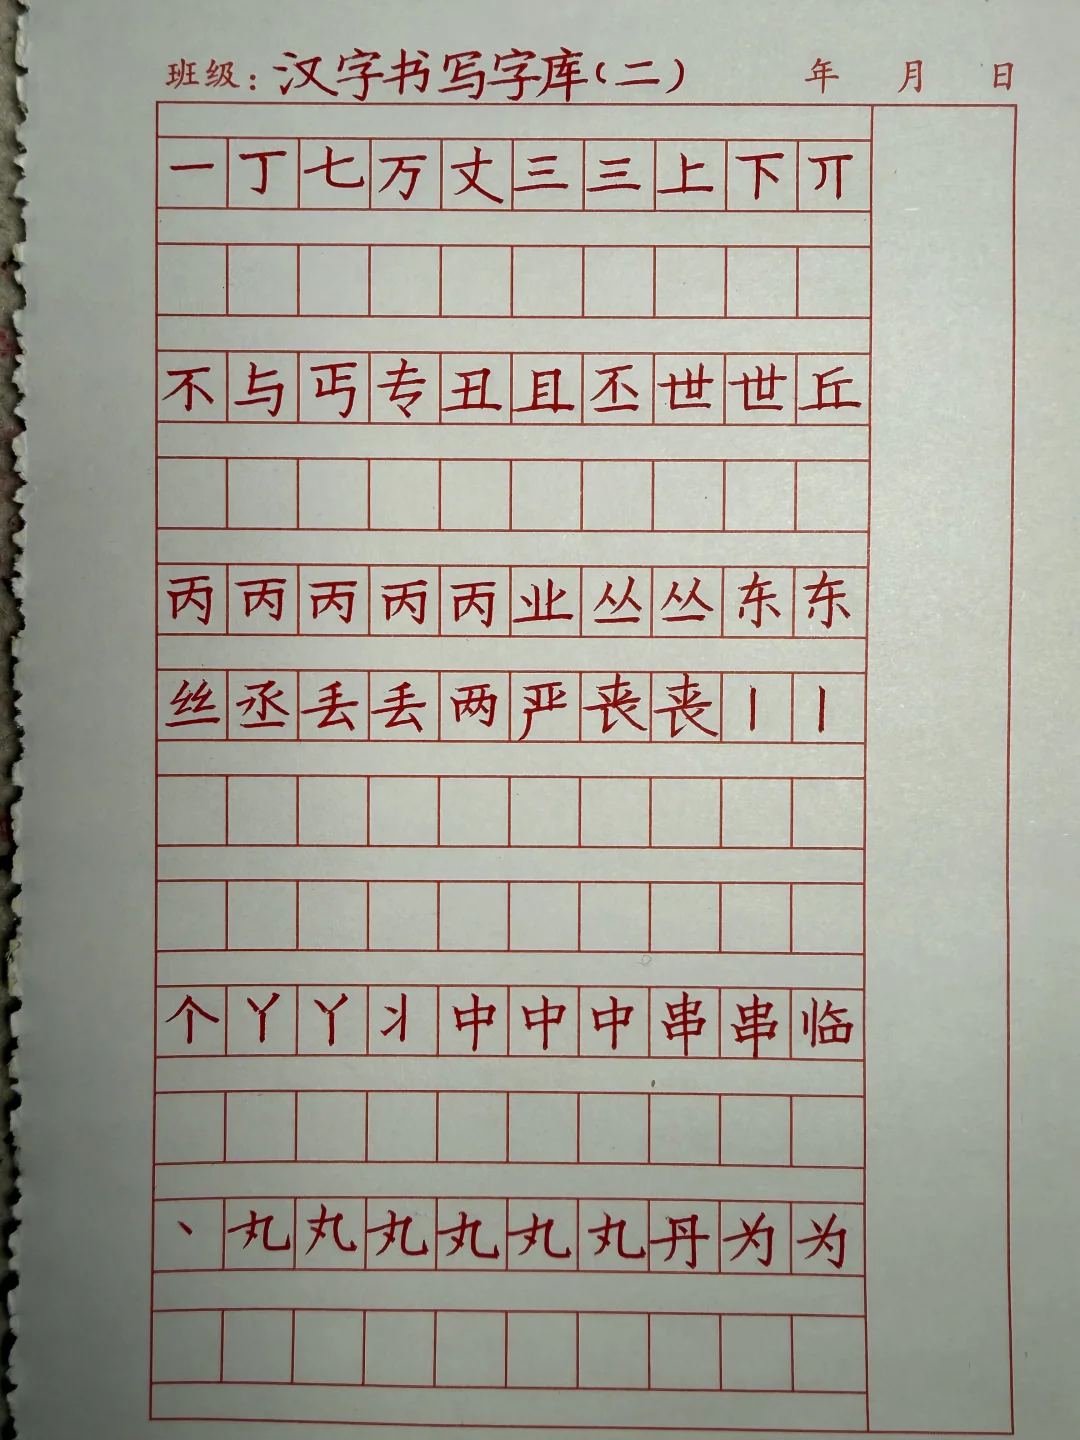 班级：汉字书写字库（二） 年 月 日
一丁七万丈三三上下丌
不与丐专丑且丕世世丘
丙丙丙丙丙业丛丛东东
丝丞丢丢两严丧丧丨丨
个丫丫丬中中中串串临
丶丸丸丸丸丸丸丹为为